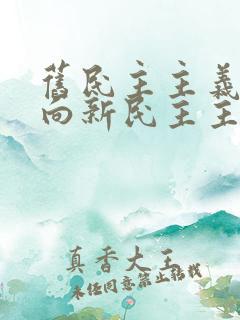 舊民主主義
向新民主主
真香大王
未经同意禁止转载